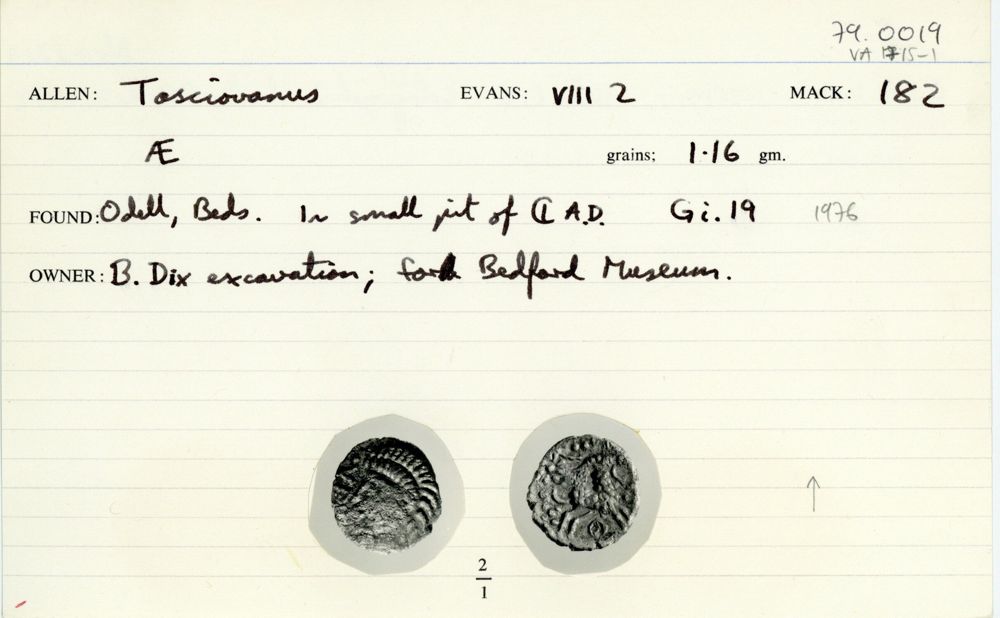 79.0019
VA 1715-1
ALLEN: Tasciovanus EVANS: VIII 2 MACK: 182
Æ grains; 1·16 gm.
FOUND: Odell, Beds. In small pit of CI A.D. Gi.19 1976
OWNER: B. Dix excavation; for Bedford Museum.
2
1